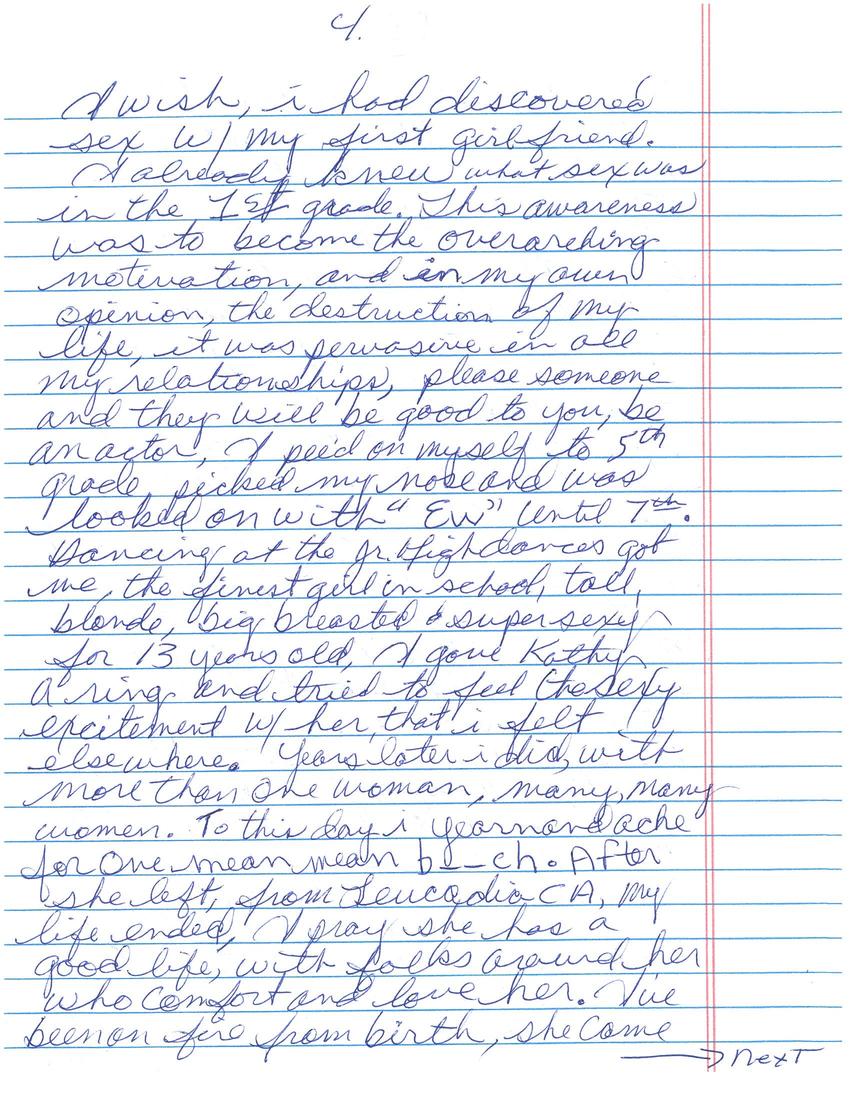 4.
I wish, i had discovered
sex w/ my first girlfriend.
I already knew what sex was
in the 1st grade. This awareness
was to become the overarching
motivation, and in my own
opinion, the destruction of my
life, it was pervasive in all
my relationships, please someone
and they will be good to you, be
an actor, I pee'd on myself to 5th
grade picked my nose and was
looked on with "EW" until 7th.
Dancing at the Jr. High dances got
me, the finest girl in school, tall,
blonde, big breasted & super sexy
for 13 years old, I gave Kathy
a ring and tried to feel the sexy
excitement w/ her, that i felt
elsewhere. Years later i did, with
more than one woman, many, many
women. To this day i yearn and ache
for one mean mean b__ch. After
she left, from Leucadia CA, my
life ended, I pray she has a
good life, with folks around her
who comfort and love her. I've
been on fire from birth, she came
→ next